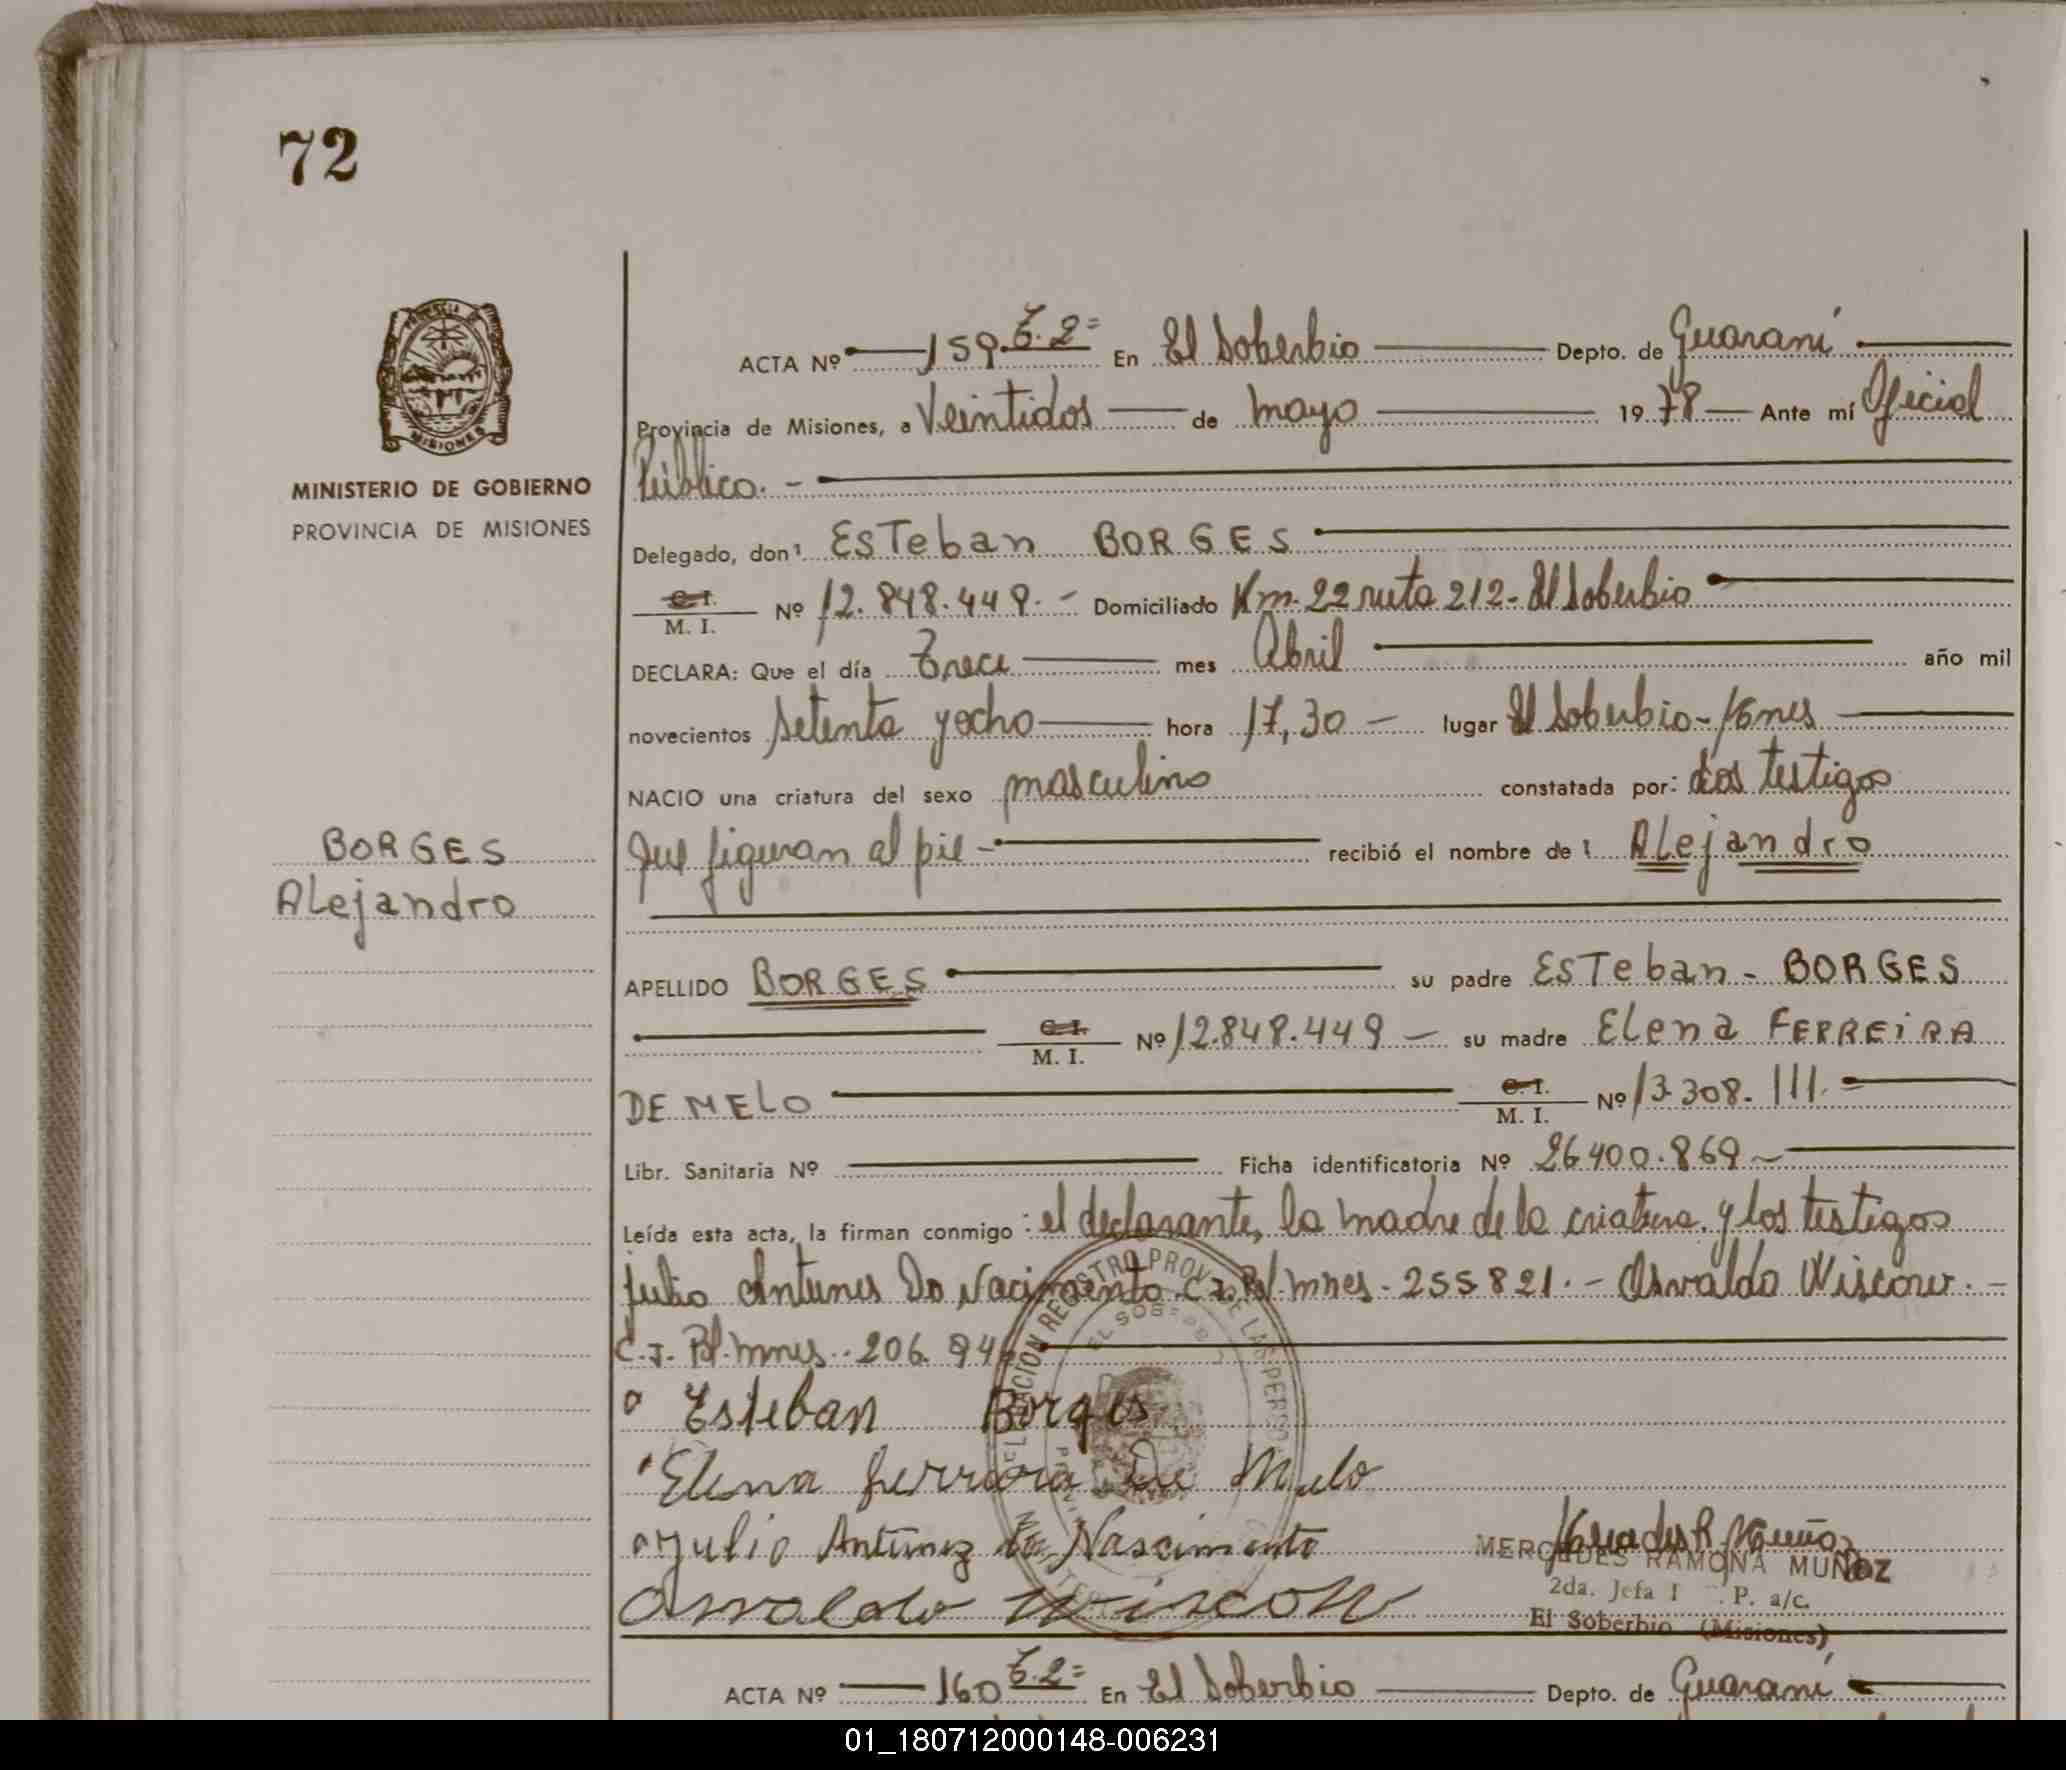 72
PROVINCIA DE
MISIONES
MINISTERIO DE GOBIERNO
PROVINCIA DE MISIONES
ACTA Nº 159. T. 2= En El Soberbio Depto. de Guaraní
Provincia de Misiones, a Veintidos de mayo 1978 Ante mí Oficial
Público. -
Delegado, don: Esteban BORGES
C.I. M. I. Nº 12.848.449.- Domiciliado Km. 22 ruta 212- El Soberbio
DECLARA: Que el día Trece mes Abril año mil
novecientos setenta y ocho hora 17,30 - lugar El Soberbio - Mnes
NACIO una criatura del sexo masculino constatada por: dos testigos
BORGES
Alejandro
que figuran al pie - recibió el nombre de: Alejandro
APELLIDO BORGES su padre Esteban - BORGES
C.I. M. I. Nº 12.848.449 - su madre Elena FERREIRA
DE MELO C.I. M. I. Nº 13.308.111.-
Libr. Sanitaria Nº Ficha identificatoria Nº 26.400.869 -
Leída esta acta, la firman conmigo: el declarante, la madre de la criatura y los testigos
Julio Antunes Do Nacimento C.I. Pol. mnes - 255821. - Osvaldo Wiscow. -
C.I. Pol. mnes. 206.94
Esteban Borges
Elena ferreira De Melo
Julio Antunez Do Nascimento
Osvaldo Wiscow
Mercedes R. Muñoz
MERCEDES RAMONA MUÑOZ
2da. Jefa P. a/c.
El Soberbio (Misiones)
ACTA Nº 160 T. 2= En El Soberbio Depto. de Guaraní
01_180712000148-006231